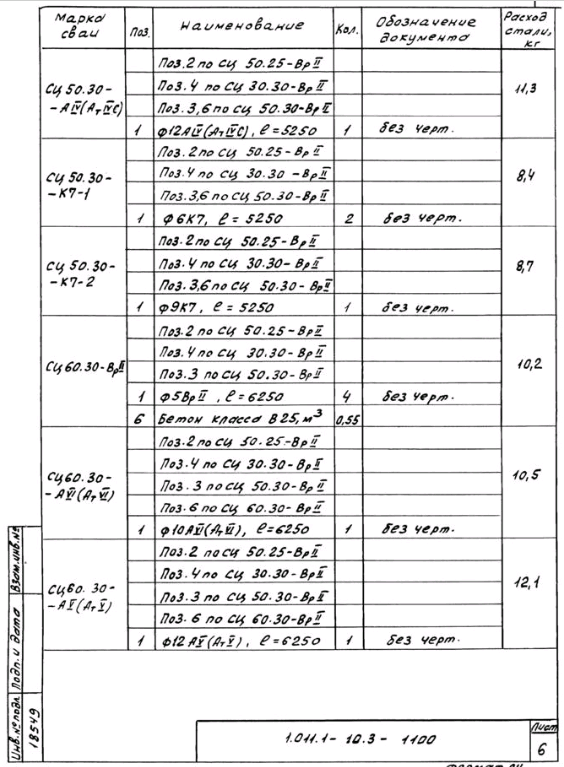 Марка сваи Поз. Наименование Кол. Обозначение документа Расход стали, кг
Поз.2 по СЦ 50.25-ВрII
СЦ 50.30- Поз.4 по СЦ 30.30-ВрII 11,3
-АIV(АтIVС) Поз.3,6 по СЦ 50.30-ВрII
1 Ф12АIV(АтIVС), ℓ=5250 1 без черт.
Поз.2 по СЦ 50.25-ВрII
СЦ 50.30- Поз.4 по СЦ 30.30-ВрII 8,4
-К7-1 Поз.3,6 по СЦ 50.30-ВрII
1 Ф6К7, ℓ=5250 2 без черт.
Поз.2 по СЦ 50.25-ВрII
СЦ 50.30- Поз.4 по СЦ 30.30-ВрII 8,7
-К7-2 Поз.3,6 по СЦ 50.30-ВрII
1 Ф9К7, ℓ=5250 1 без черт.
Поз.2 по СЦ 50.25-ВрII
СЦ 60.30-ВрII Поз.4 по СЦ 30.30-ВрII 10,2
Поз.3 по СЦ 50.30-ВрII
1 Ф5ВрII, ℓ=6250 4 без черт.
6 Бетон класса В25, м³ 0,55
Поз.2 по СЦ 50.25-ВрII
СЦ60.30- Поз.4 по СЦ 30.30-ВрII 10,5
-АVI(АтVI) Поз.3 по СЦ 50.30-ВрII
Поз.6 по СЦ 60.30-ВрII
1 Ф10АVI(АтVI), ℓ=6250 1 без черт.
Поз.2 по СЦ 50.25-ВрII
СЦ60.30- Поз.4 по СЦ 30.30-ВрII 12,1
-АV(АтV) Поз.3 по СЦ 50.30-ВрII
Поз.6 по СЦ 60.30-ВрII
1 Ф12АV(АтV), ℓ=6250 1 без черт.
Взам.инв.№
Подп. и дата
Инв.№подл.
18549
1.011.1-10.3-1100
Лист
6